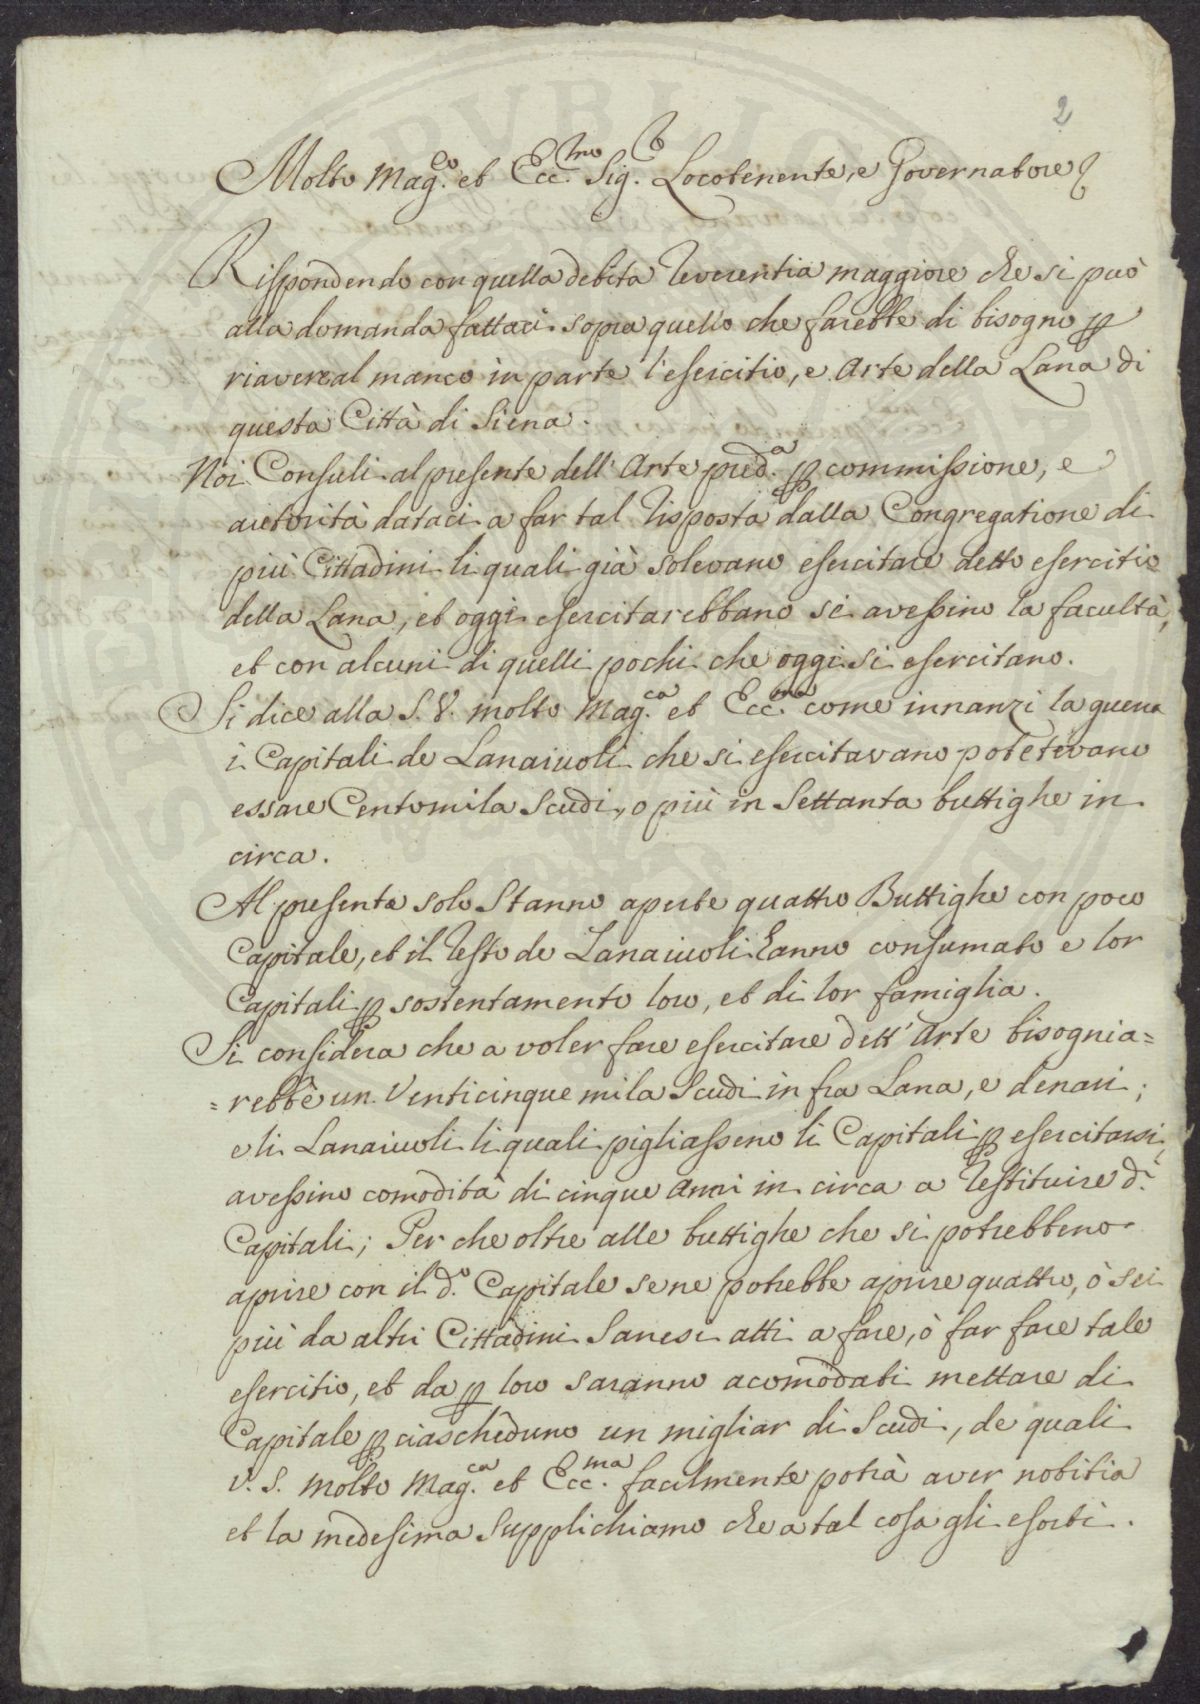 2
Molto Mag.co et Ecc.mo Sig.r Locotenente, e Governatore
Rispondendo con quella debita reverentia maggiore che si può
alla domanda fattaci sopra quello che farebbe di bisogno p
riavere al manco in parte l'esercitio, e Arte della Lana di
questa Città di Siena.
Noi Consuli al presente dell'Arte pred.a p commissione, e
autorità dataci a far tal risposta dalla Congregatione di
più Cittadini li quali già solevano esercitare detto esercitio
della Lana, et oggi esercitarebbano se avessino la facultà,
et con alcuni di quelli pochi che oggi si esercitano.
Si dice alla S.V. molto Mag.ca et Ecc.ma come innanzi la guerra
i Capitali de Lanaiuoli che si esercitavano potetevano
essare Centomila Scudi, o più in Settanta buttighe in
circa.
Al presente solo Stanno aperte quattro Buttighe con poco
Capitale, et il resto de Lanaiuoli hanno consumato e lor
Capitali p sostentamento loro, et di lor famiglia.
Si considera che a voler fare esercitare dett'Arte bisognia=
=rebbe un Venticinque mila Scudi in fra Lana, e denari;
e li Lanaiuoli li quali pigliasseno li Capitali p esercitarsi,
avessino comodità di cinque Anni in circa a restituire d.i
Capitali; Per che oltre alle buttighe che si potrebbeno
aprire con il d.o Capitale se ne potrebbe aprire quattro, ò sei
più da altri Cittadini Sanesi atti a fare, ò far fare tale
esercitio, et da p loro saranno acomodati mettare di
Capitale p ciascheduno un migliar di Scudi, de quali
V.S. molto Mag.ca et Ecc.ma facilmente potrà aver notitia
et la medesima Supplichiamo che a tal cosa gli esorti.